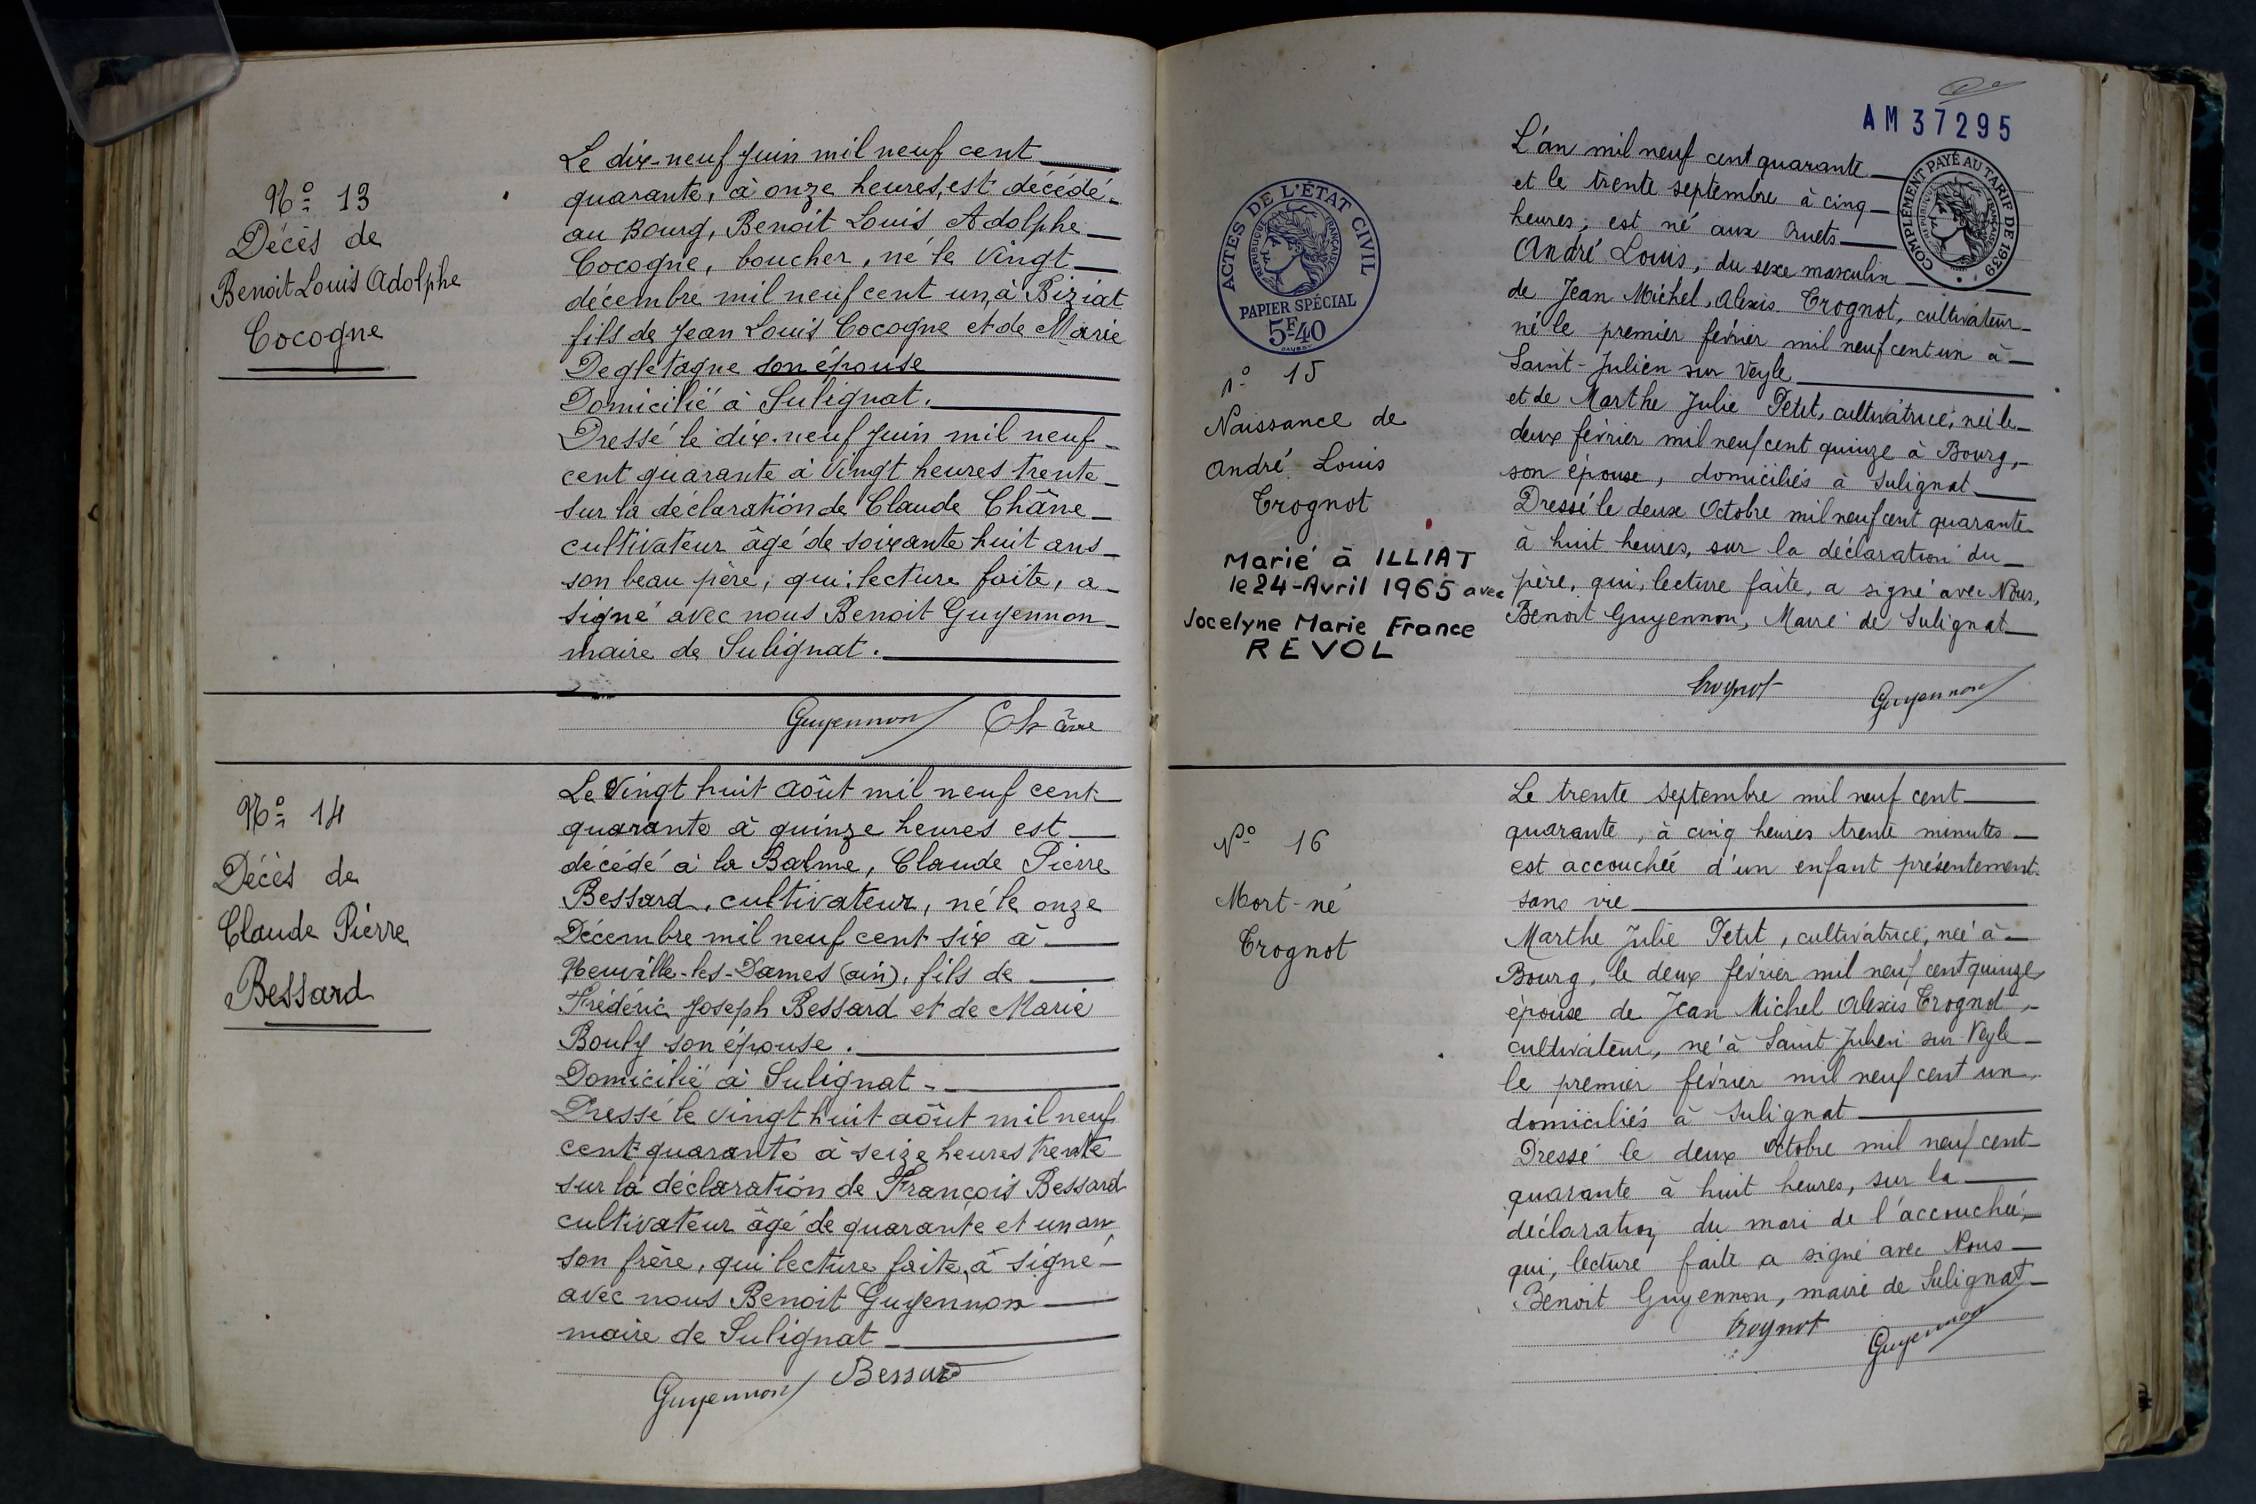 N° 13
Décès de
Benoit Louis Adolphe
Cocogne
Le dix-neuf Juin mil neuf cent
quarante, à onze heures, est décédé
au Bourg, Benoit Louis Adolphe
Cocogne, boucher, né le Vingt
décembre mil neuf cent un, à Biziat
fils de Jean Louis Cocogne et de Marie
Degletagne son épouse
Domicilié à Sulignat.
Dressé le dix-neuf Juin mil neuf
cent quarante à Vingt heures trente
sur la déclaration de Claude Châne
cultivateur âgé de soixante huit ans
son beau père, qui, lecture faite, a
signé avec nous Benoit Guyennon
maire de Sulignat.
Guyennon Châne
N° 14
Décès de
Claude Pierre
Bessard
Le Vingt huit Août mil neuf cent
quarante à quinze heures est
décédé à la Balme, Claude Pierre
Bessard, cultivateur, né le onze
Décembre mil neuf cent six à
Neuville-les-Dames (ain), fils de
Frédéric Joseph Bessard et de Marie
Bouly son épouse.
Domicilié à Sulignat
Dressé le vingt huit août mil neuf
cent quarante à seize heures trente
sur la déclaration de François Bessard
cultivateur âgé de quarante et un an,
son frère, qui lecture faite, a signé
avec nous Benoit Guyennon
maire de Sulignat
Guyennon Bessard
AM37295
COMPLÉMENT PAYÉ AU TARIF DE 1939
RÉPUBLIQUE FRANÇAISE
ACTES DE L'ÉTAT CIVIL
RÉPUBLIQUE FRANÇAISE
PAPIER SPÉCIAL
5F40
n° 15
Naissance de
André Louis
Trognot
Marié à ILLIAT
le 24-Avril 1965 avec
Jocelyne Marie France
REVOL
L'an mil neuf cent quarante
et le trente septembre à cinq
heures, est né aux
André Louis, du sexe masculin
de Jean Michel, Alexis Trognot, cultivateur
né le premier février mil neuf cent un à
Saint-Julien sur Veyle
et de Marthe Julie Petit, cultivatrice, née le
deux février mil neuf cent quinze à Bourg,
son épouse, domiciliés à Sulignat
Dressé le deux Octobre mil neuf cent quarante
à huit heures, sur la déclaration du
père, qui, lecture faite, a signé avec Nous,
Benoit Guyennon, Maire de Sulignat
Trognot Guyennon
N° 16
Mort-né
Trognot
Le trente septembre mil neuf cent
quarante, à cinq heures trente minutes
est accouchée d'un enfant présentement
sans vie
Marthe Julie Petit, cultivatrice, née à
Bourg, le deux février mil neuf cent quinze
épouse de Jean Michel Alexis Trognot,
cultivateur, né à Saint-Julien sur Veyle
le premier février mil neuf cent un
domiciliés à Sulignat
Dressé le deux octobre mil neuf cent
quarante à huit heures, sur la
déclaration du mari de l'accouchée,
qui, lecture faite a signé avec Nous
Benoit Guyennon, maire de Sulignat
Trognot Guyennon